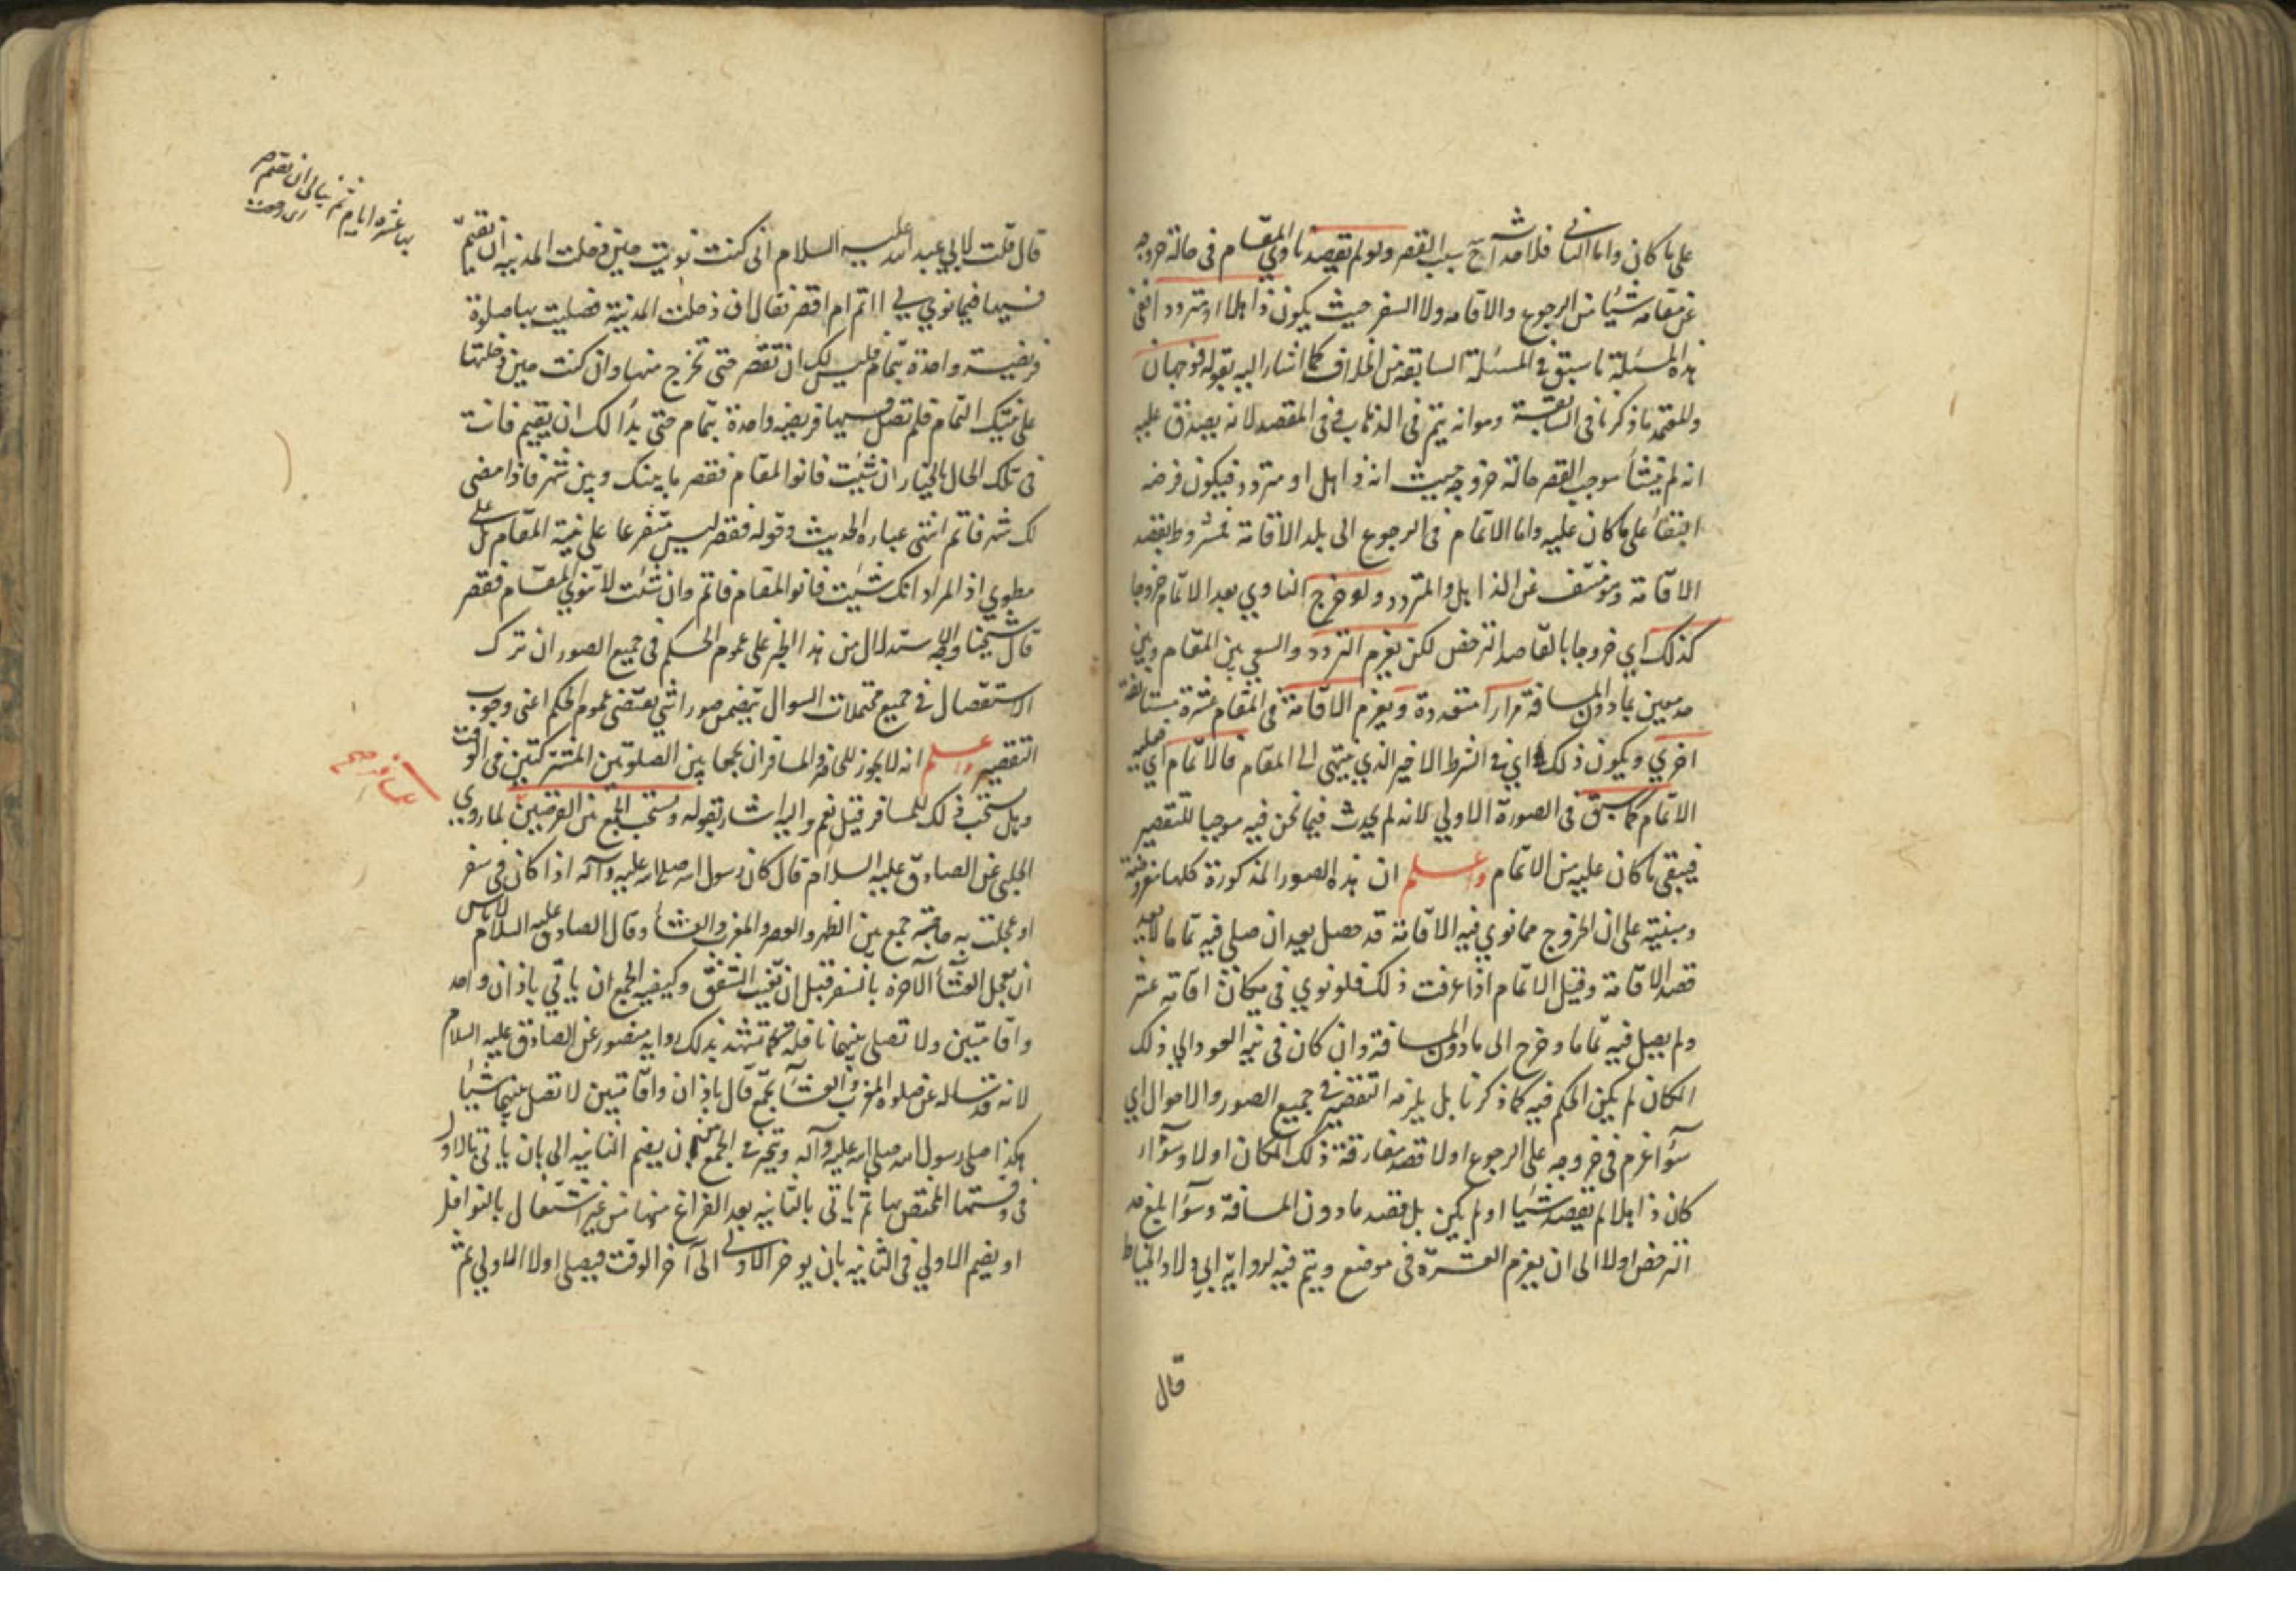 على ما كان واما الثانى فلامتناع سبب القصر ولو لم يقصد ناوى المقام فى حالة خروجه
عن مقامه شيئا من الرجوع والاقامه ولا السفر حيث يكون ذاهلا او مترددا ففى
هذه المسئلة ما سبق فى المسئلة السابقة من الخلاف كما اشار اليه بقوله فوجهان
والمعتمد ما ذكرنا فى السابقة وهو انه يتم فى الذهاب فى المقصد لانه يصدق عليه
انه لم ينشأ موجب القصر حالة خروجه حيث انه ذاهل او متردد فيكون فرضه
البقاء على ما كان عليه واما الاتمام فى الرجوع الى بلد الاقامة فمشروط بقصد
الاقامة وهو منتف عن الذاهل والمتردد ولو خرج الناوي بعد الاتمام خروجا
كذلك اي خروجا بالقاصد الترخص لكن يعزم التردد والسعي بين المقام وبين
مدينتين بما دون المسافة مرارا متعددة ويعزم الاقامة فى المقام عشرة مستانفة
اخري ويكون ذلك اي فى الشرط الاخير الذي ينتهى الى المقام فالاتمام اي عليه
الاتمام كما سبق فى الصورة الاولي لانه لم يحدث فيما نحن فيه موجبا للتقصير
فيبقى ما كان عليه من الاتمام واعلم ان هذه الصور المذكورة كلها مفروضة
ومبنية على ان الخروج مما نوي فيه الاقامة قد حصل بعد ان صلى فيه تماما بعد
قصد الاقامة وقبل الاتمام اذا عرفت ذلك فلو نوي فى مكان اقامة عشر
ولم يصل فيه تماما وخرج الى ما دون المسافة وان كان فى نيه العود الي ذلك
المكان لم يكن الحكم فيه كما ذكرنا بل يلزمه التقصير فى جميع الصور والاحوال اي
سوآء عزم فى خروجه على الرجوع او لا قصد مفارقة ذلك المكان او لا وسوآء
كان ذاهلا لم يقصد شيئا او لم يكن بل قصد ما دون المسافة وسوآء بلغ حد
الترخص او لا الى ان يعزم العشرة فى موضع ويتم فيه لرواية ابي ولاد الحناط
قال
قال قلت لابي عبد الله عليه السلام انى كنت نويت حين دخلت المدينه ان نقيم
بها عشره ايام ثم بدا لى ان نقيم
فيها فيما نوي لي ااتم ام اقصر فقال ان دخلت المدنية فصليت بها صلوة
فريضة واحدة بتمام فليس لك ان تقصر حتى تخرج منها وان كنت حين دخلتها
على نيتك التمام فلم تصل فيها فريضه واحدة بتمام حتى بدا لك ان يقيم فانت
فى تلك الحال بالخيار ان شئت فانو المقام فقصر ما بينك وبين شهر فاذا مضى
لك شهر فاتم انتهى عباره الحديث وقوله فقصر ليس متفرعا على نية المقام بل على
مطوي اذ المراد انك شئت فانو المقام فاتم وان شئت لا تنوي المقام فقصر
قال شيخنا وجه الاستدلال من هذا الخبر على عموم الحكم فى جميع الصور ان ترك
الاستفصال فى جميع محتملات السوال يتضمن صورا شتى يقتضى عموم الحكم اعنى وجوب
التقصير واعلم انه لا يجوز للحاضر والمسافر ان يجمعا بين الصلوتين المشتركتين فى الوقت
وهل يستحب ذلك للمسافر قيل نعم واليه اشار بقوله ويستحب الجمع بين الفرضين لما روي
الحلبى عن الصادق عليه السلام قال كان رسول الله صلى الله عليه وآله اذا كان فى سفر
او عجلت به حاجة جمع بين الظهر والعصر والمغرب والعشآء وقال الصادق عليه السلام لا باس
ان تعجل العشآء الآخرة بالسفر قبل ان تغيب الشفق وكيفيه الجمع ان ياتي باذان واحد
واقامتين ولا تصلى بينهما نافلة كما تشهد بذلك روايه منصور عن الصادق عليه السلام
لانه قد ساله عن صلوه المغرب والعشآء بجمع قال باذان واقامتين لا تصل بينهما شيئا
هكذا صلى رسول الله صلى الله عليه وآله ويتخير فى الجمع بين ان يضم الثانيه الى بان ياتى بالاولى
فى وقتها المختص بها ثم ياتى بالثانيه بعد الفراغ منها من غير اشتغال بالنوافل
او يضم الاولي فى الثانيه بان يوخر الاولى الى آخر الوقت فيصلى اولا الاولي ثم